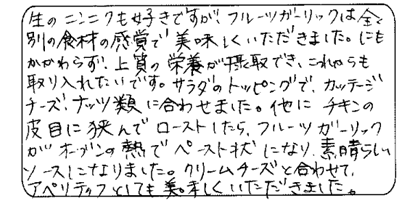 生のニンニクも好きですが、フルーツガーリックは全く
別の食材の感覚で美味しくいただきました。にも
かかわらず、上質の栄養が摂取でき、これからも
取り入れたいです。サラダのトッピングで、カッテージ
チーズ、ナッツ類に合わせました。他にチキンの
皮目に挟んでローストしたら、フルーツガーリック
がオーブンの熱でペースト状になり、素晴らしい
ソースになりました。クリームチーズと合わせて、
アペリティフとしても美味しくいただきました。